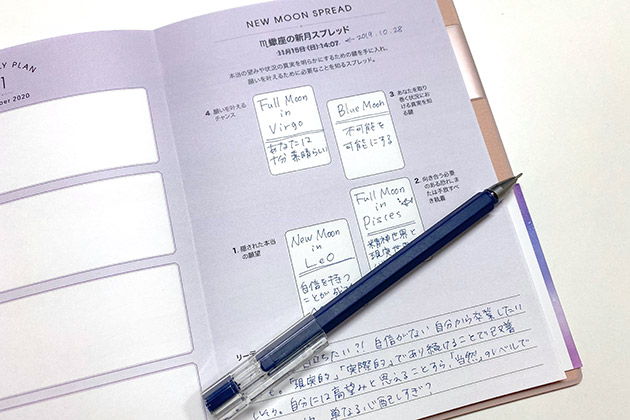 LY PLAN
11
ber 2020
NEW MOON SPREAD
♏蠍座の新月スプレッド
11月15日(日)14:07 ←2019.10.28
本当の望みや状況の真実を明らかにするための鍵を手に入れ、
願いを叶えるために必要なことを知るスプレッド。
4. 願いを叶える
チャンス
Full Moon
in
Virgo
あなたは
十分素晴らしい
Blue Moon
不可能を
可能にする
3. あなたを取り
巻く状況にお
ける真実を知
る鍵
1. 隠された本当
の願望
New Moon
in
Leo
自信を持つ
ことが
Full Moon
in
Pisces
精神世界と
現実世界
2. 向き合う必要
のある恐れ、ま
たは手放すべ
き執着
リー
ちたい?! 自信がない自分から卒業したい
も。「現実的」「実際的」であり続けることで
自分には高望みと思えることすら、「当然」のレベルで
単なる心配しすぎ?